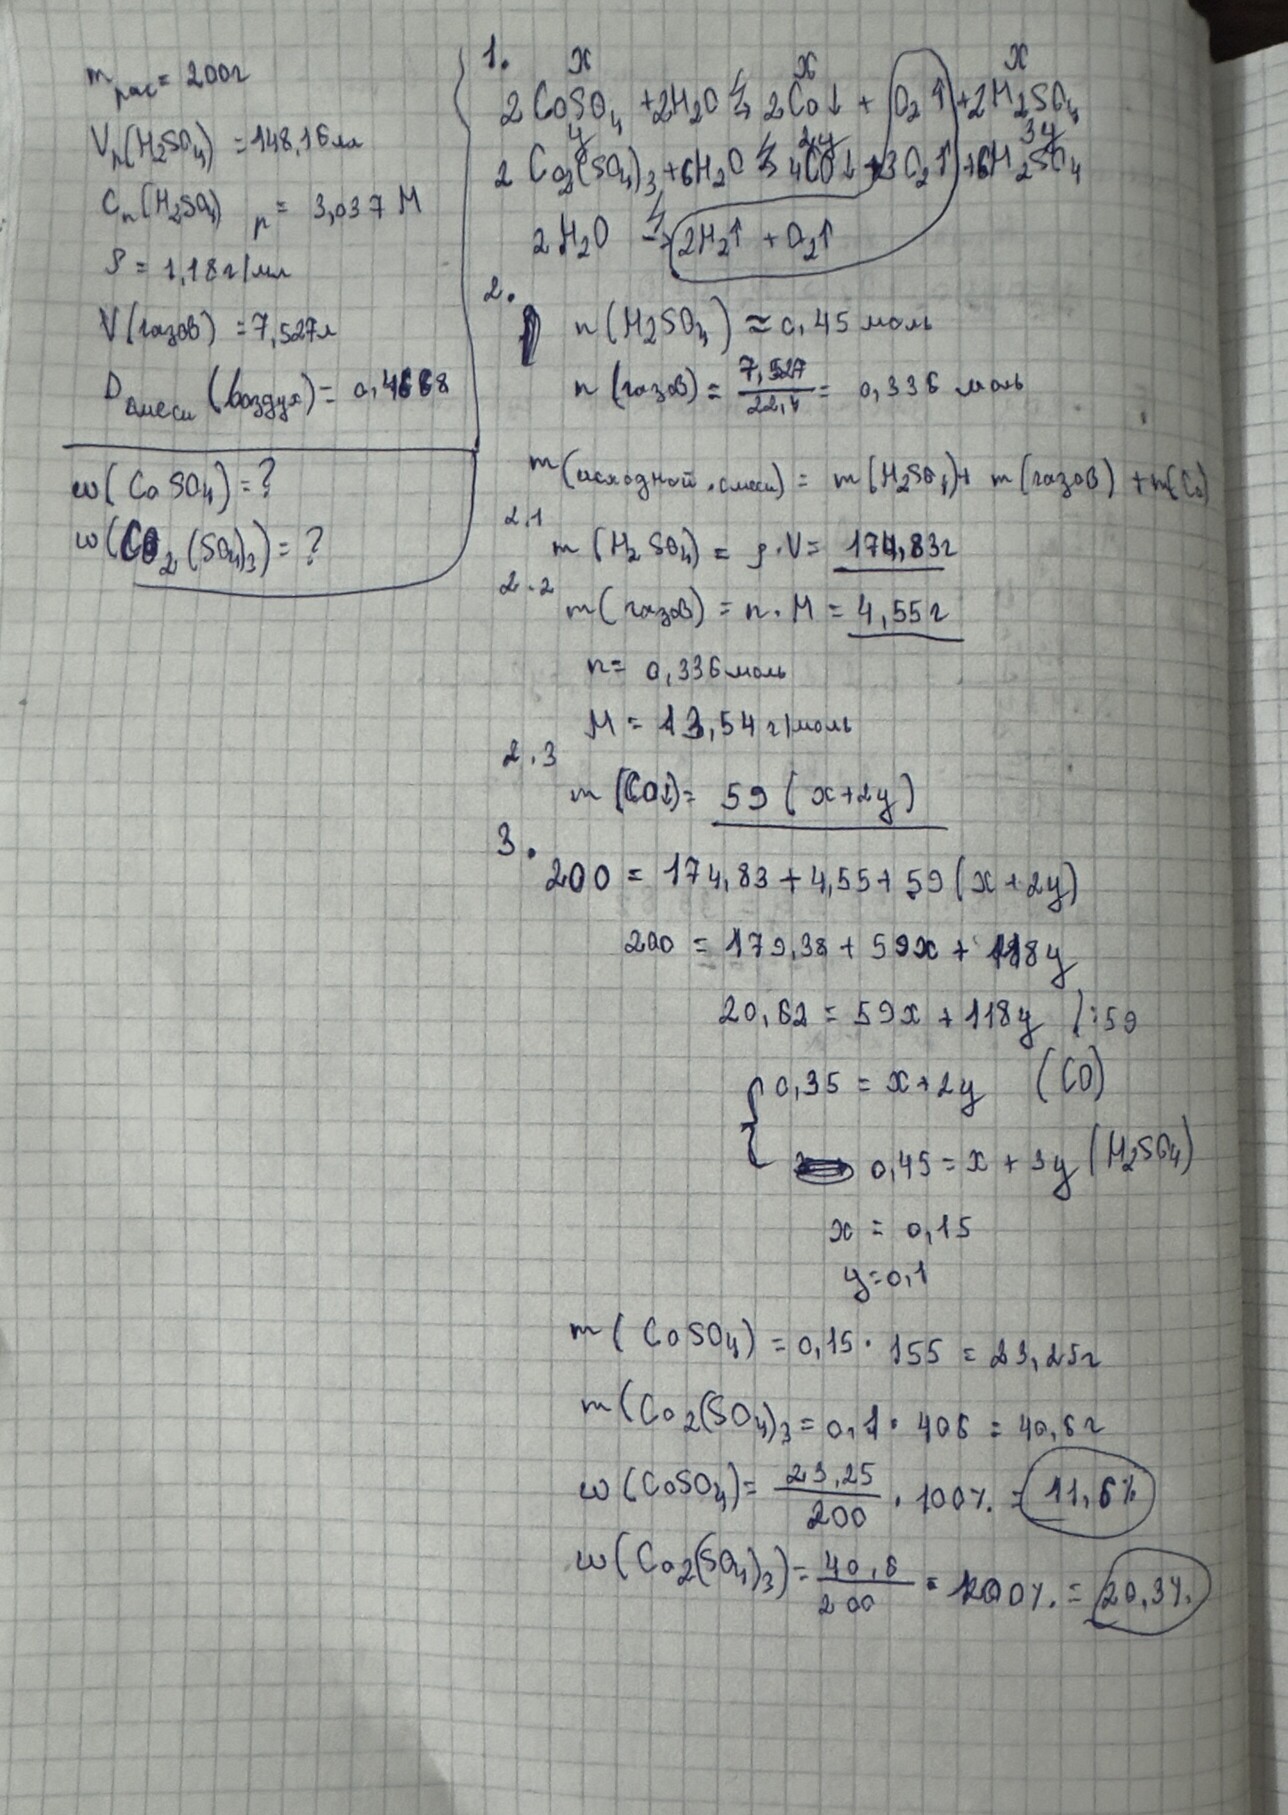 m рас = 200г
Vр(H2SO4) = 148,16 мл
Cп(H2SO4) р = 3,037 M
ρ = 1,18 г/мл
V(газов) = 7,527л
D смеси (воздух) = 0,4668
w(CoSO4) = ?
w(Co2(SO4)3) = ?
1.
x x x
2CoSO4 + 2H2O ⚡→ 2Co↓ + O2↑ + 2H2SO4
y 2y 3y
2Co2(SO4)3 + 6H2O ⚡→ 4Co↓ + 3O2↑ + 6H2SO4
2H2O ⚡→ 2H2↑ + O2↑
2.
n(H2SO4) ≈ 0,45 моль
n(газов) = 7,527/22,4 = 0,336 моль
m(исходной смеси) = m(H2SO4) + m(газов) + m(Co)
2.1
m(H2SO4) = ρ·V = 174,83г
2.2
m(газов) = n·M = 4,55г
n = 0,336 моль
M = 13,54 г/моль
2.3
m(Co↓) = 59(x+2y)
3.
200 = 174,83 + 4,55 + 59(x+2y)
200 = 179,38 + 59x + 118y
20,62 = 59x + 118y |:59
0,35 = x+2y (CO)
0,45 = x + 3y (H2SO4)
x = 0,15
y = 0,1
m(CoSO4) = 0,15·155 = 23,25г
m(Co2(SO4)3 = 0,1·406 = 40,6г
w(CoSO4) = 23,25/200 · 100% = 11,6%
w(Co2(SO4)3) = 40,6/200 · 100% = 20,3%